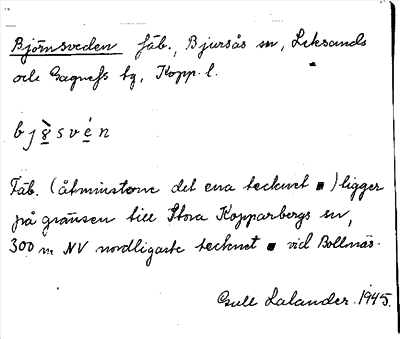 Björnsveden fäb., Bjursås sn, Leksands
och Gagnefs tg, Kopp. l.
b j ö s v e n
Fäb. (åtminstone det ena tecknet ▪) ligger
på gränsen till Stora Kopparbergs sn,
300 m NV nordligaste tecknet ▪ vid Bollnäs.
Gull Lalander. 1945.